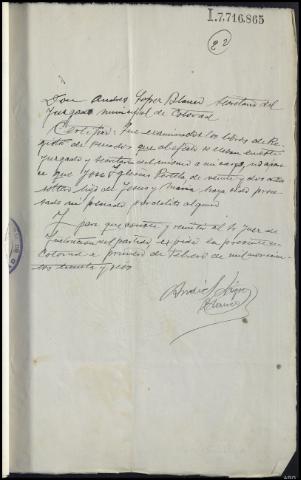 I.7.716.865
22
Don Andres Lopez Blanco Secretario del
Juzgado municipal de
Certifico: Que examinados los libros de Re
gistro de penados que al efecto se llevan en este
Juzgado y Secretaria del mismo a mi cargo, no apare
ce que Jose Iglesias Portela de veinte y dos años
soltero hijo de Jesus y Maria haya sido proce
sado ni penado por delito alguno
Y para que conste y remitir al Sr Juez de
Instruccion del partido, expido la presente en
a primero de Febrero de mil novecien
tos treinta y
Andres Lopez
Blanco